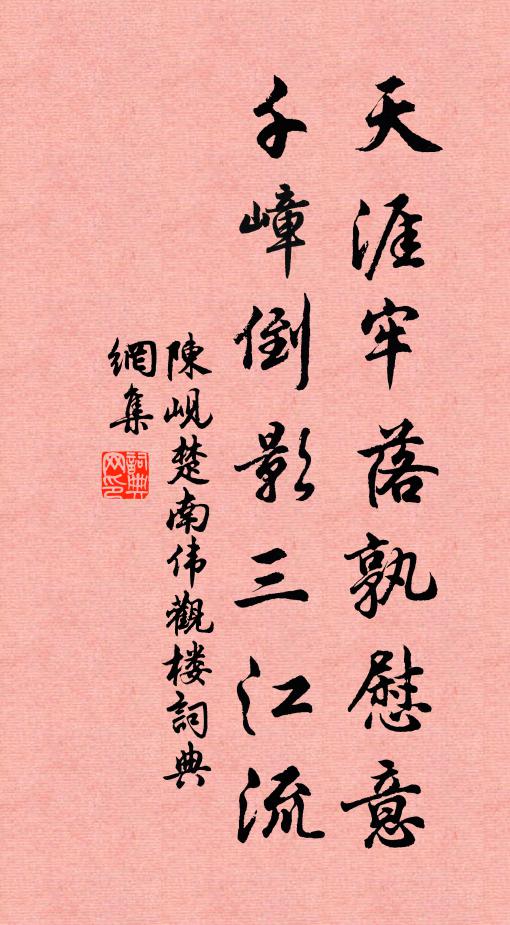 天涯牢落孰慰意
千嶂倒影三江流
陳峴楚南伟觀楼詞典
網集
詞典
网印